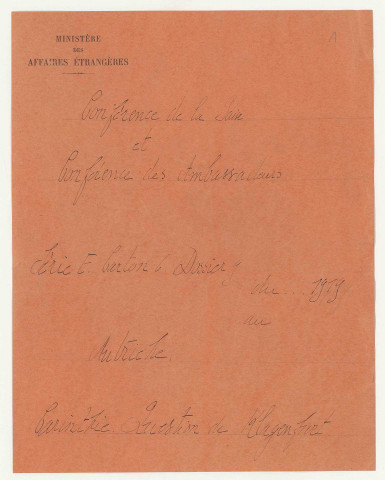 1
MINISTÈRE
DES
AFFAIRES ÉTRANGÈRES
Conférence de la Paix
et
Conférence des Ambassadeurs
Série E Carton 6 Dossier 7
du 1919
au
Autriche
Carinthie. Question de Klagenfurt